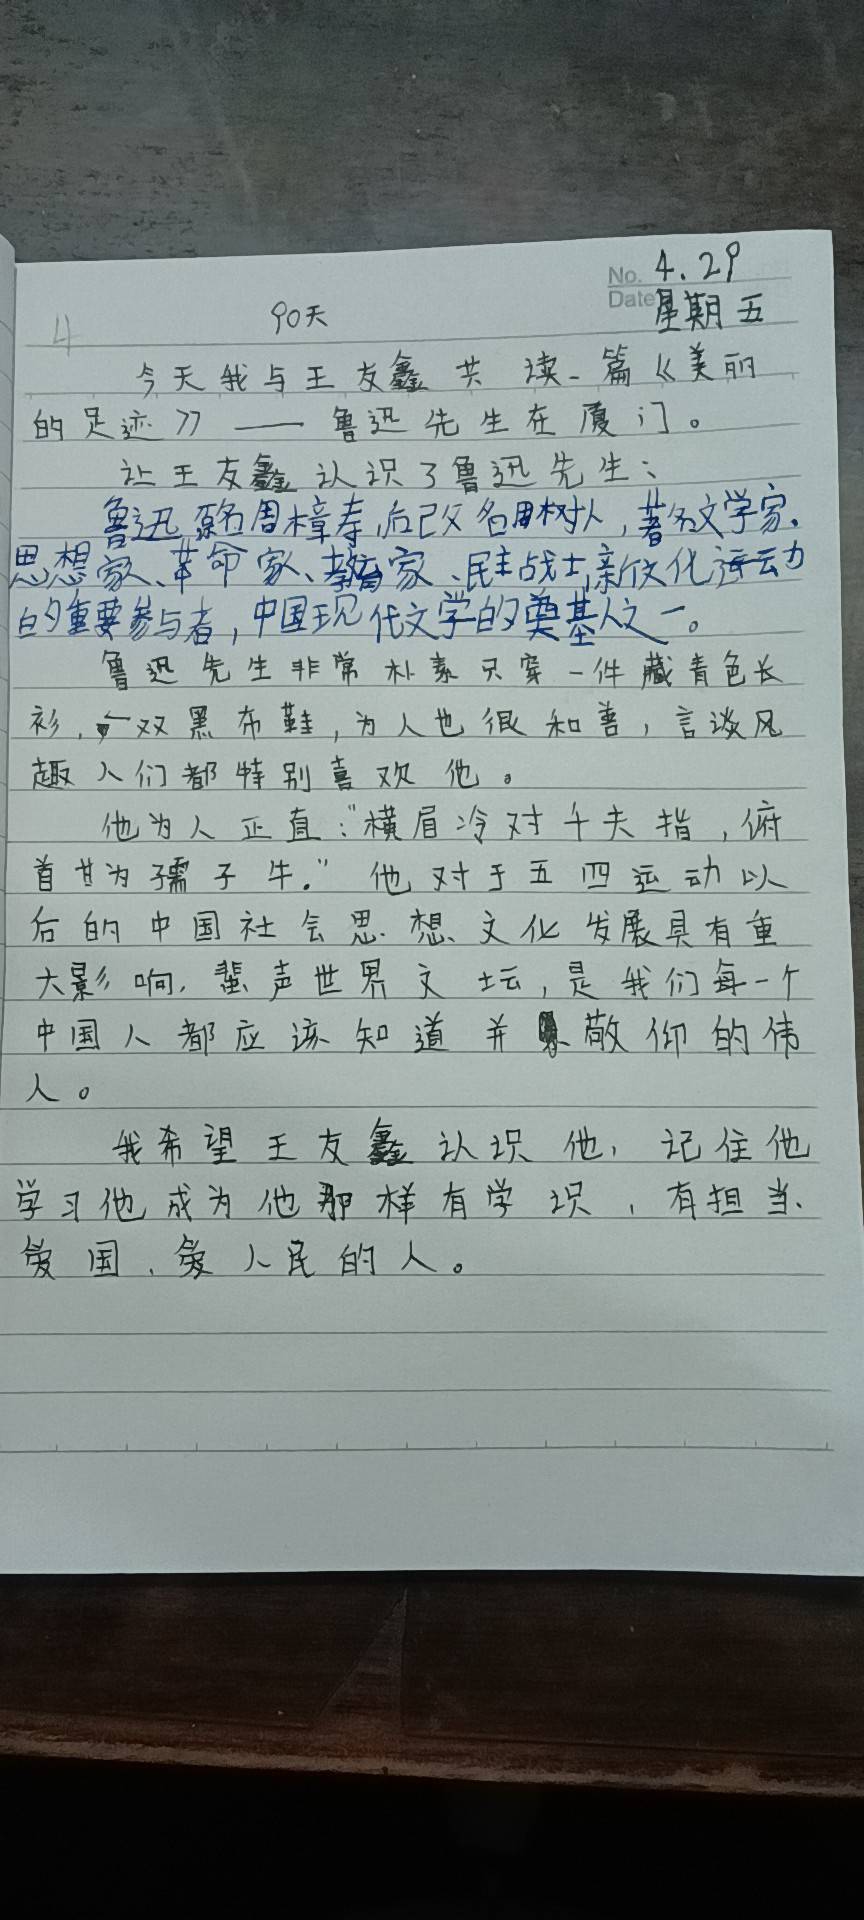 No. 4.29
90天
Date 星期五
4
今天我与王友鑫共读一篇《美丽
的足迹》——鲁迅先生在厦门。
让王友鑫认识了鲁迅先生：
鲁迅,原名周樟寿,后改名周树人,著名文学家、
思想家、革命家、教育家、民主战士,新文化运动
的重要参与者,中国现代文学的奠基人之一。
鲁迅先生非常朴素只穿一件藏青色长
衫,一双黑布鞋,为人也很和善,言谈风
趣人们都特别喜欢他。
他为人正直:“横眉冷对千夫指,俯
首甘为孺子牛.”他对于五四运动以
后的中国社会思想文化发展具有重
大影响,蜚声世界文坛,是我们每一个
中国人都应该知道并敬仰的伟
人。
我希望王友鑫认识他,记住他
学习他成为他那样有学识,有担当、
爱国、爱人民的人。